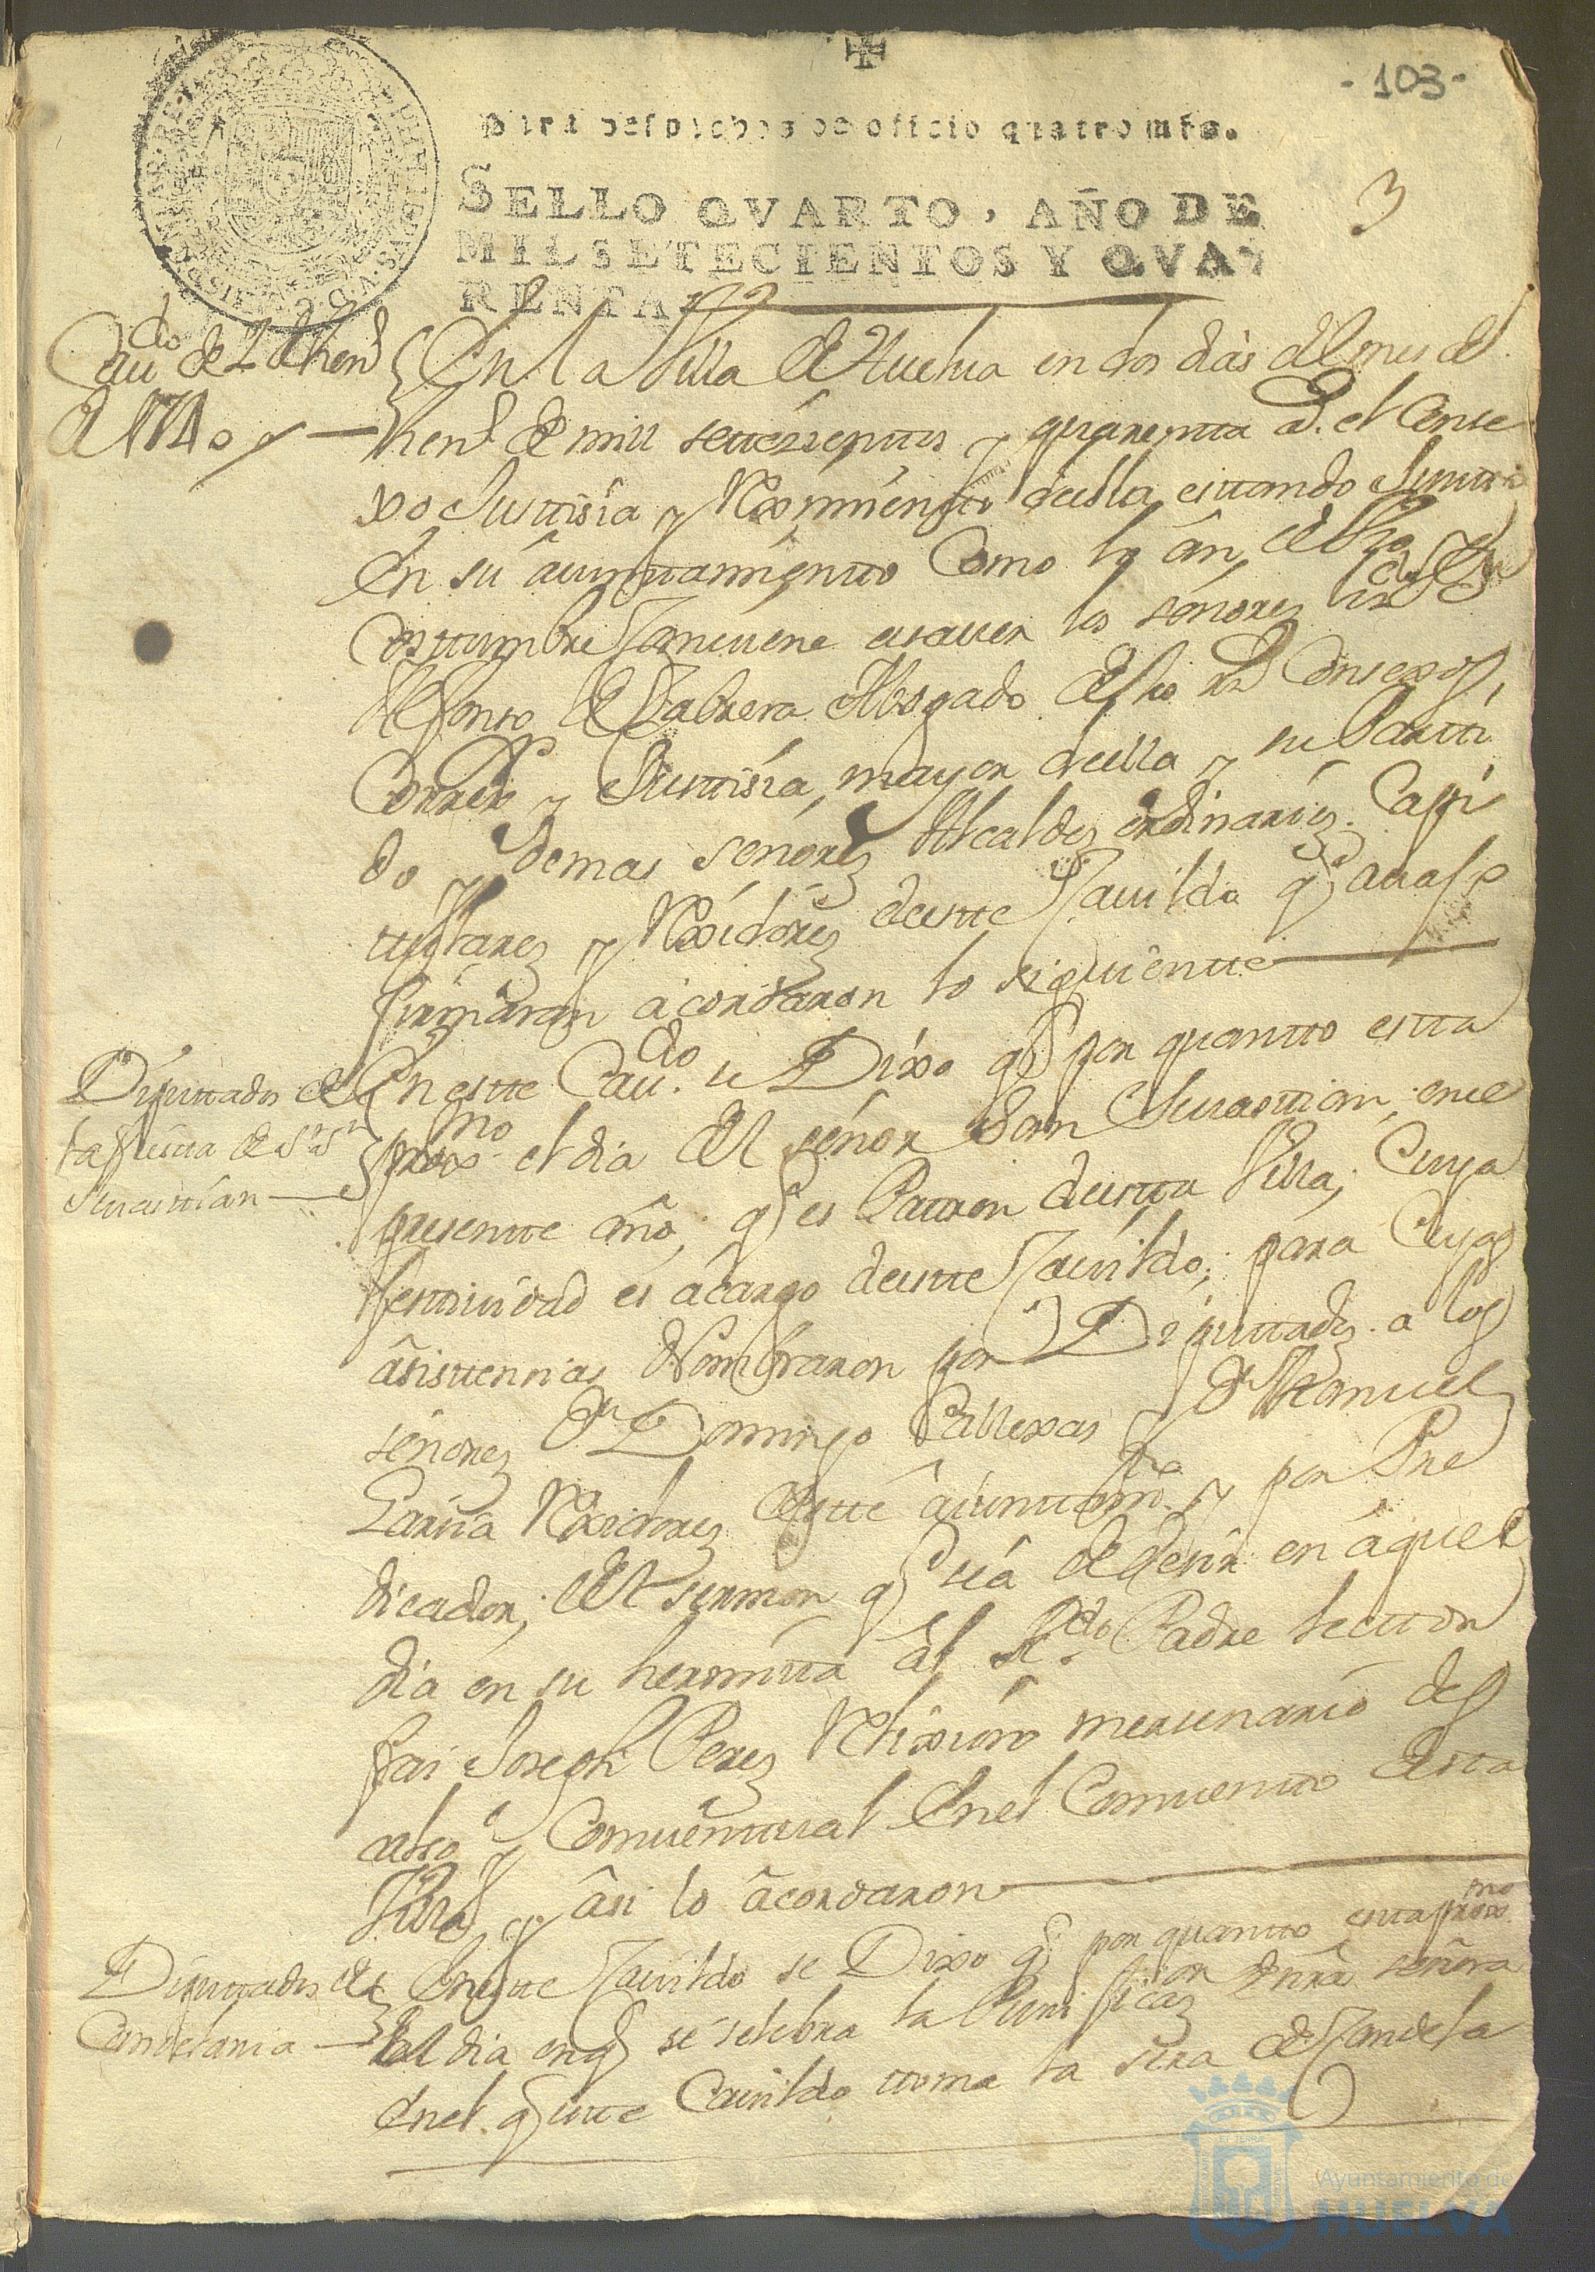 -103-
Para despachos de oficio quatro mrs.
SELLO QVARTO, AÑO DE
MIL SETECIENTOS Y QVA-
RENTA
3
Caudo de 2 de hen.º
de 1740
En la Villa de Huelva en dos dias del mes de
hen.º de mill settezientos y quarenta a.s el Conse
xo Justtisia y Reximiento della esttando Juntto
en su âyunttamientto Como lo ân de Uzo y
Costtumbre Combiene a saver los señores
Alfonso de Cabrera Abogado de los R.s Consexos,
Correx.or y Justtisia mayor della y su Partti
do y demas señores Alcaldes ordinarios. Capi
ttulares y Rexidores destte Cavildo q.e avaxo
firmaran acordaron lo siguientte
Diputtados de
la fiesta de S.r S.n
Sevasttian
En estte Cau.do se Dixo q.e por quantto estta
proxmo el dia del señor San Sevasttian, en el
presentte año, q.e es Pattron destta Villa, Cuya
festtividad es a cargo destte Cavildo, para Cuyas
âsisttencias Nombraron por Diputtados a los
señores D.n Domingo Callexas y D.n Manuel
Garcia Rexidores destte âyunttam.to y por Pre
dicador, del sermon q.e se â de desir en âquel
dia en su hermitta âl R.do Padre lecttor
frai Joseph Perez Relixioso mersenario des
calso y Comventtual en el Comventto desta
Villa y âsi lo âcordaron
Diputtados de
Candelaria
En estte Cavildo se Dixo q.e por quantto estta proxmo
el dia en q.e se selebra la Purificaz.on de nrâ señora
en el q.e estte Cavildo ttoma la sera de Candela
Ayuntamiento de
HUELVA